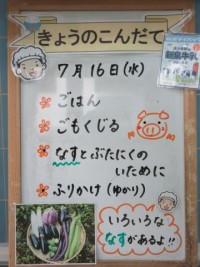 きょうのこんだて
7月16日(水)
ごはん
ごもくじる
なすとぶたにくの
いために
ふりかけ(ゆかり)
いろいろな
なすがあるよ!!